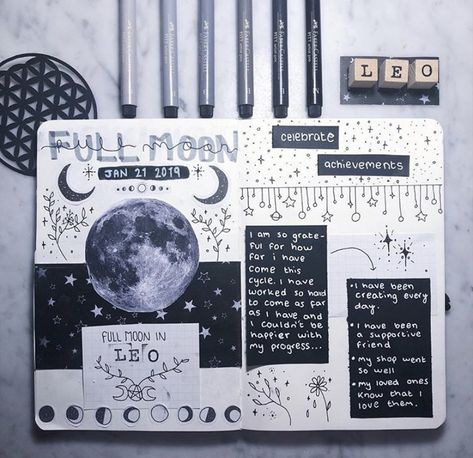 FABER-CASTELL
FABER-CASTELL
FABER-CASTELL
FABER-CASTELL
LEO
FULL MOON
full moon
JAN 21 2019
celebrate
achievements
I am so grate-
ful for how
far i have
come this
cycle. I have
worked so hard
to come as far
as I have and
I couldn't be
happier with
my progress...
• I have been
creating every
day.
• I have been
a supportive
friend
• my shop went
so well
• my loved ones
know that I
love them.
FULL MOON IN
LEO